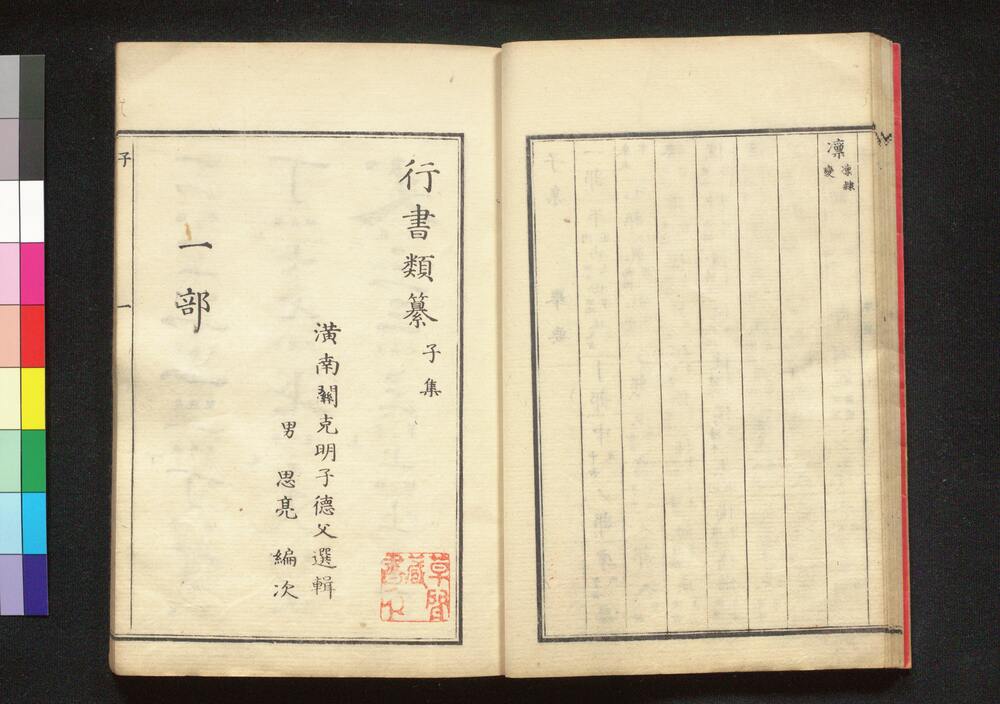 凛 凜隷
變
行書類纂 子集
潢南關克明子德父選輯
男 思亮 編次
一部
子
一